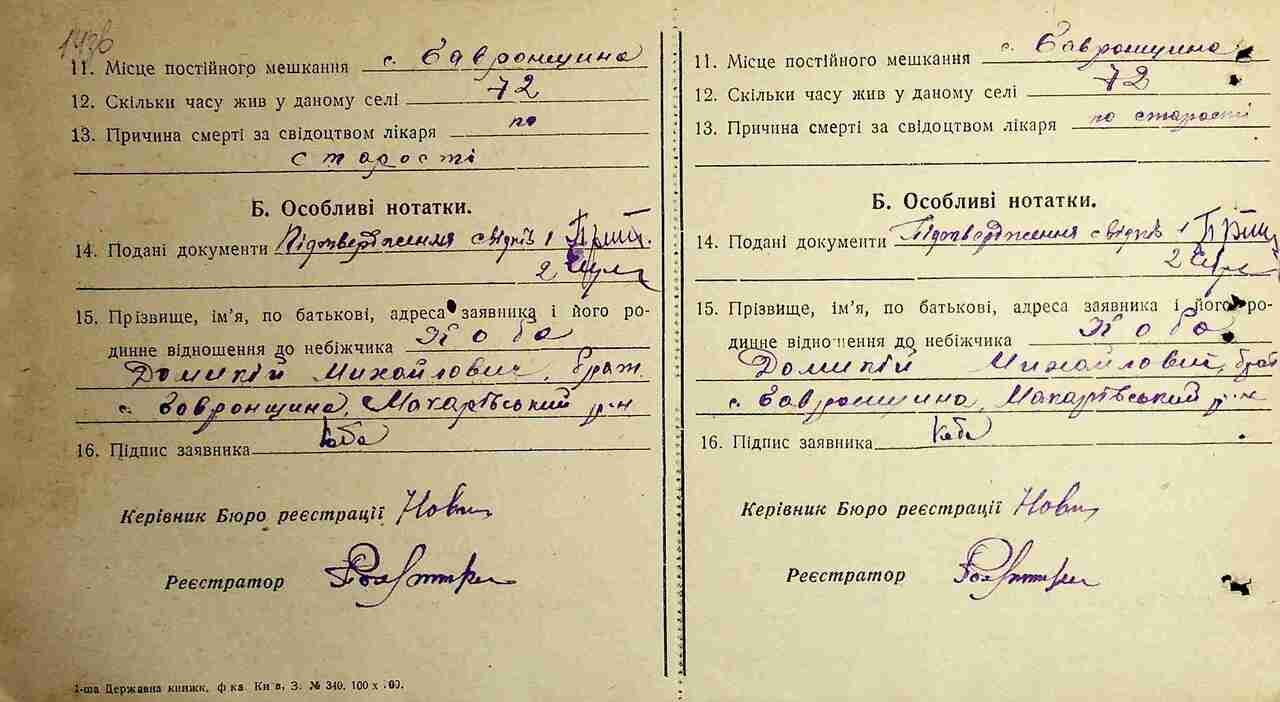 1436
11. Місце постійного мешкання с. Гавронщина
12. Скільки часу жив у даному селі 72
13. Причина смерті за свідоцтвом лікаря по
старості
Б. Особливі нотатки.
14. Подані документи Підтвердження свідків 1
2
15. Прізвище, ім’я, по батькові, адреса заявника і його ро-
динне відношення до небіжчика Коба
Михайлович, брат.
с. Гавронщина, Макарівський р-н
16. Підпис заявника Коба
Керівник Бюро реєстрації
Реєстратор
1-ша Державна книжк. ф-ка. Київ, З. № 340. 100 х 100.
11. Місце постійного мешкання с. Гавронщина
12. Скільки часу жив у даному селі 72
13. Причина смерті за свідоцтвом лікаря по старості
Б. Особливі нотатки.
14. Подані документи Підтвердження свідків 1
2
15. Прізвище, ім’я, по батькові, адреса заявника і його ро-
динне відношення до небіжчика Коба
Михайлович, брат
с. Гавронщина, Макарівський р-н
16. Підпис заявника Коба
Керівник Бюро реєстрації
Реєстратор